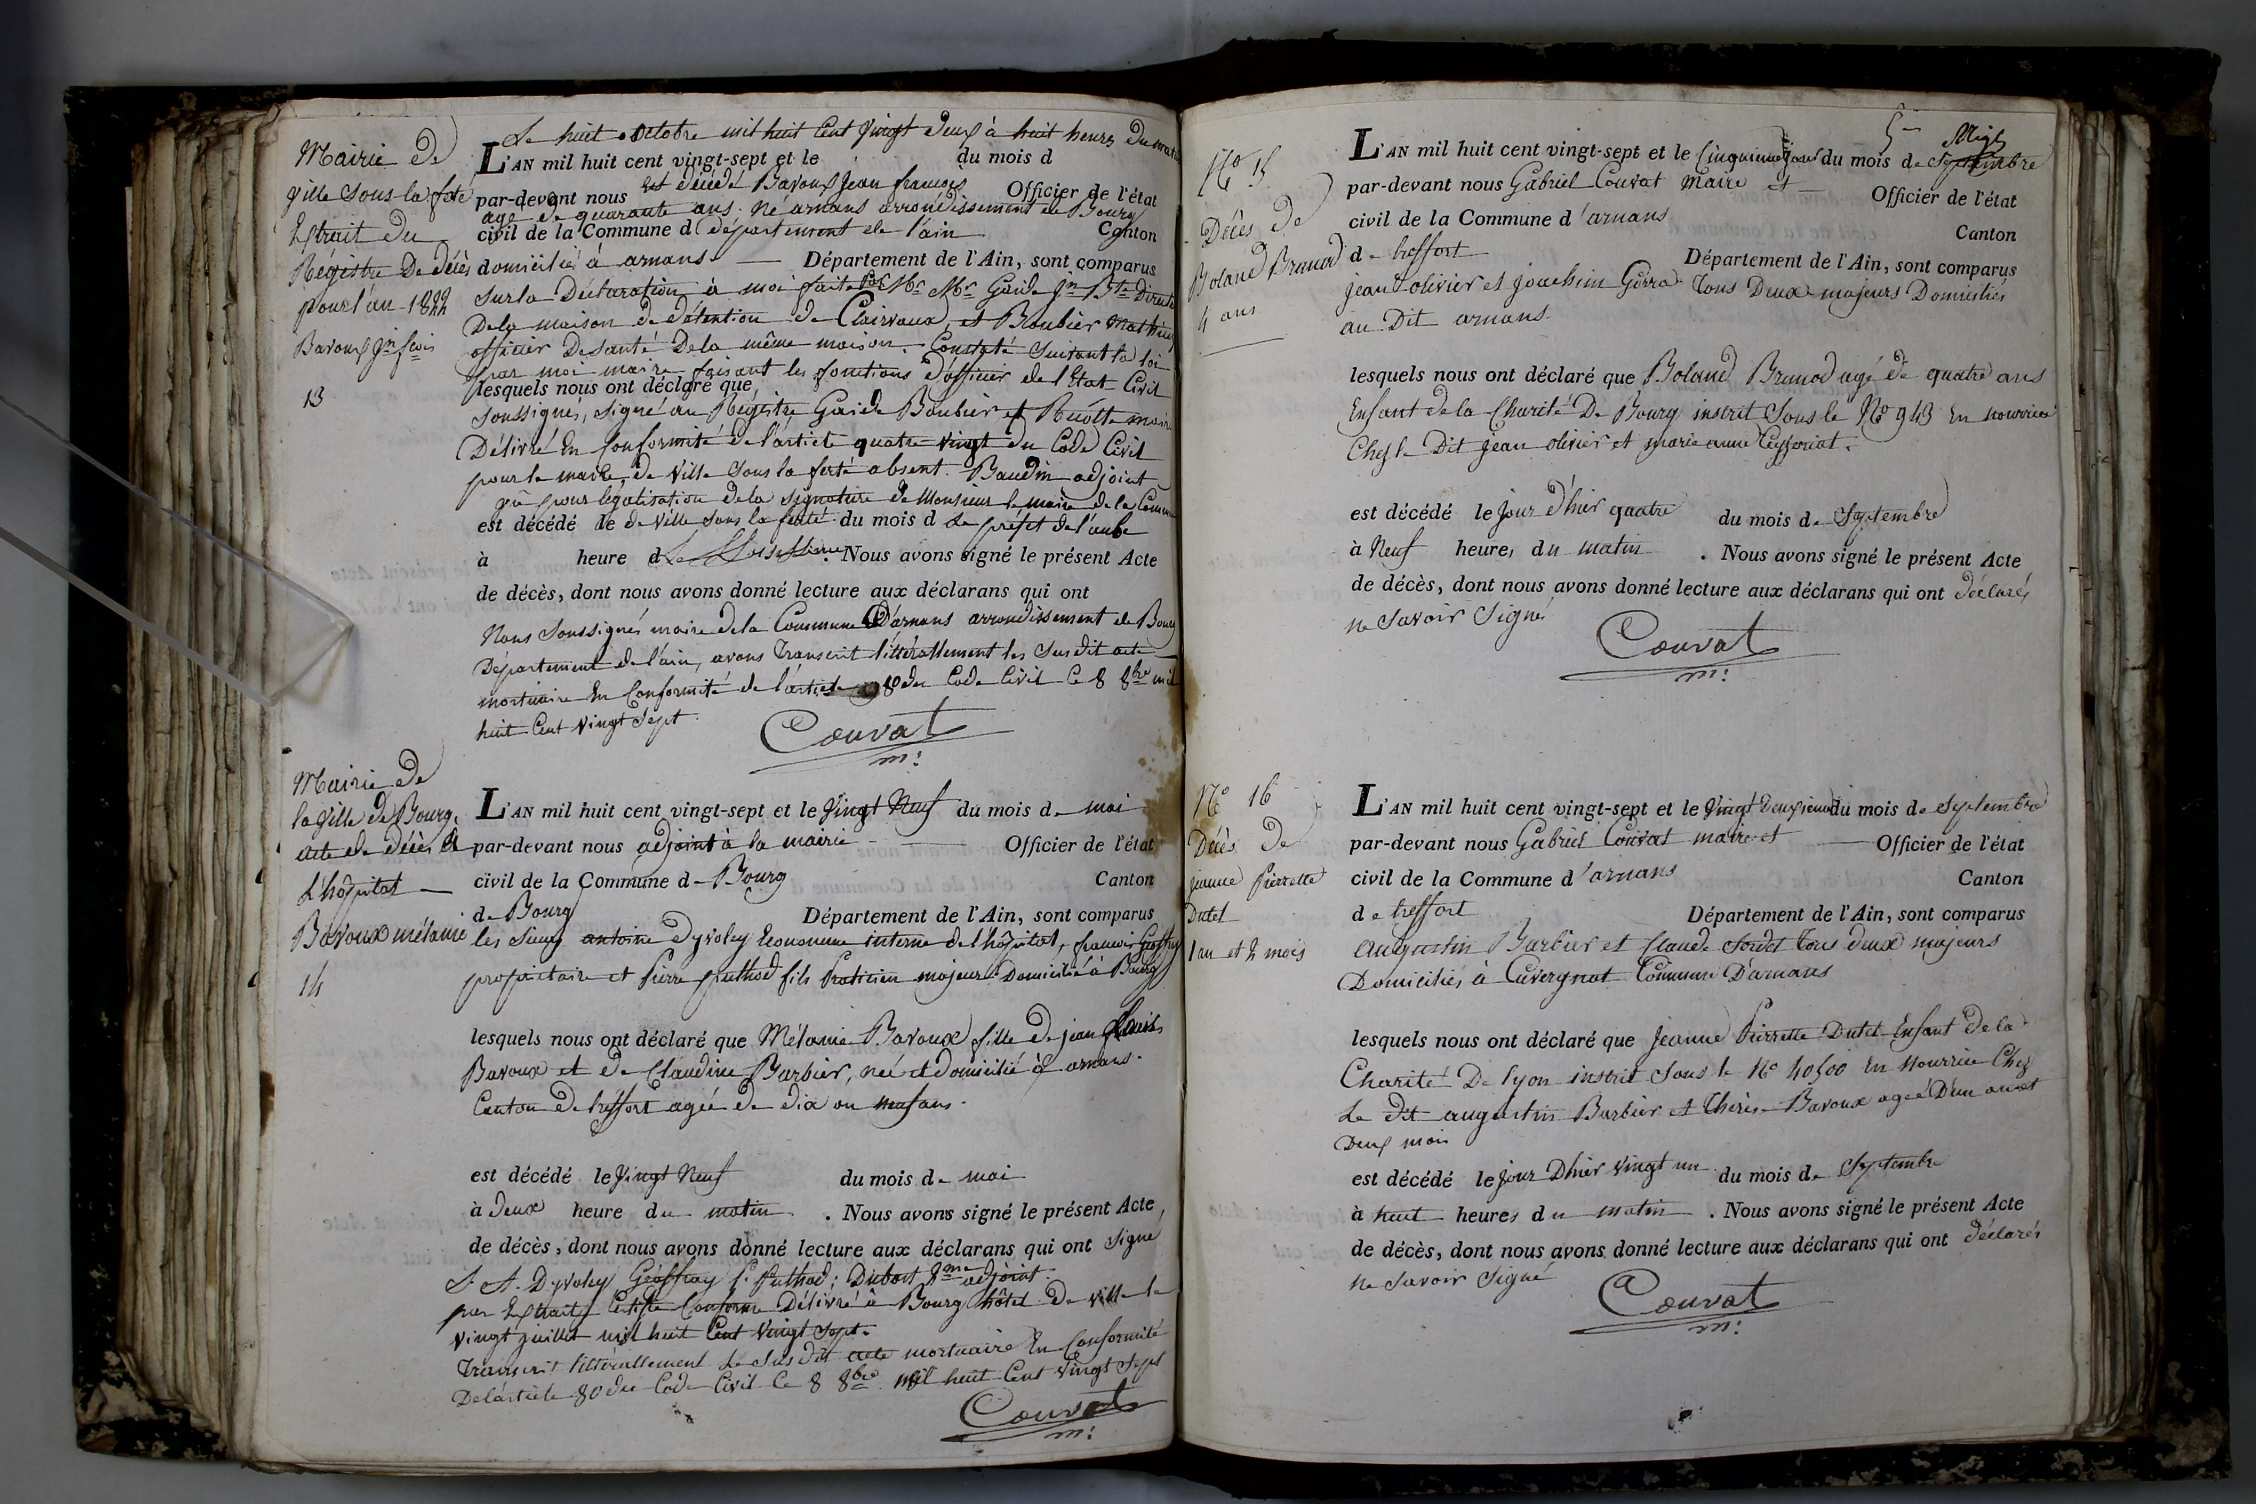 Mairie de
Ville sous la ferté
Extrait du
Régistre De décès
pour l'an 1822
Bavoux Jn fcois
13
Le huit octobre mil huit Cent Vingt Deux à huit heures Du matin
L'AN mil huit cent vingt-sept et le du mois d
par-devant nous est décédé Bavoux Jean françois Officier de l'état
agé de quarante ans. Né arnans arrondissement de Bourg
civil de la Commune d département de l'ain Canton
domicilié à arnans Département de l'Ain, sont comparus
Sur la Déclaration à moi faite Par Mr Mr Gaide Jn Bte Directeur
De la maison de détention de Clairvaux, et Boubier Mathieu
officier De santé De la même maison. Constaté Suivant la loi
par moi maire faisant les fonctions d'officier de l'Etat Civil
lesquels nous ont déclaré que
Soussignés, signé au Régistre Gaide Boubier et maire
Délivré En Conformité de l'article quatre vingt du Code Civil
pour le maire de Ville Sous la ferté absent. Baudin adjoint
vû pour légalisation de la signature de Monsieur le maire de la Commune
est décédé le de Ville sous la ferté du mois d Le préfet de l'aube
à heure d . Nous avons signé le présent Acte
de décès, dont nous avons donné lecture aux déclarans qui ont
Nous Soussignés maire de la Commune D'arnans arrondissement de Bourg
Département de l'ain, avons Transcrit littérallement les Susdit acte
mortuaire En Conformité de l'article 80 du Code Civil Ce 8 8bre mil
huit Cent Vingt Sept.
Couvat
m:
Mairie de
la Ville de Bourg,
acte de décès à
L'hôpital
Bavoux mélanie
14
L'AN mil huit cent vingt-sept et le Vingt Neuf du mois de mai
par-devant nous adjoint à la mairie Officier de l'état
civil de la Commune de Bourg Canton
de Bourg Département de l'Ain, sont comparus
les Sieurs antoine Dyvoley Econome interne de l'hôpital, françois Geoffray
propriétaire et Pierre puthod fils Praticien majeur Domicilié à Bourg
lesquels nous ont déclaré que Mélanie Bavoux fille de jean Louis
Bavoux et de Claudine Barbier, née et domicilié à arnans.
Canton de treffort agée de dix ou neuf ans.
est décédé le Vingt Neuf du mois de mai
à Deux heure du matin . Nous avons signé le présent Acte
de décès, dont nous avons donné lecture aux déclarans qui ont signé
Dyvoley Geoffray P. Puthod; Dubost 2me adjoint.
par Extrait Certifié Conforme Délivré à Bourg hôtel De ville le
vingt juillet mil huit Cent Vingt Sept.
Transcrit littérallement Le Susdit acte mortuaire En Conformité
De l'article 80 du Code Civil Ce 8 8bre mil huit Cent Vingt Sept
Couvat
m:
No 15
Décès de
Boland Brunod
4 ans
5
L'AN mil huit cent vingt-sept et le Cinquieme jour du mois de Septembre
par-devant nous Gabriel Couvat Maire et Officier de l'état
civil de la Commune d'arnans Canton
de treffort Département de l'Ain, sont comparus
jean olivier et joachim Gorra Tous Deux majeurs Domiciliés
au Dit arnans
lesquels nous ont déclaré que Boland Brunod agé de quatre ans
Enfant de la Charité De Bourg inscrit Sous le No 943 En nourrice
Chez le Dit jean olivier et marie anne
est décédé le jour d'hier quatre du mois de Septembre
à Neuf heures du matin . Nous avons signé le présent Acte
de décès, dont nous avons donné lecture aux déclarans qui ont déclarés
ne Savoir Signé
Couvat
m:
No 16
Décès De
jeanne Pierrette
Dutel
1 an et 2 mois
L'AN mil huit cent vingt-sept et le Vingt Deuxieme du mois de Septembre
par-devant nous Gabriel Couvat maire et Officier de l'état
civil de la Commune d'arnans Canton
de treffort Département de l'Ain, sont comparus
augustin Barbier et Claude Sordet Tous deux majeurs
Domiciliés à Cuvergnat Commune D'arnans
lesquels nous ont déclaré que Jeanne Pierrette Dutel Enfant de la
Charité De lyon inscrit Sous le No 40500 En Nourrice Chez
Le dit augustin Barbier et Thérèse Bavoux agée D'un an et
Deux mois
est décédé le jour D'hier vingt un du mois de Septembre
à huit heures du matin . Nous avons signé le présent Acte
de décès, dont nous avons donné lecture aux déclarans qui ont déclarés
ne Savoir Signé
Couvat
m: